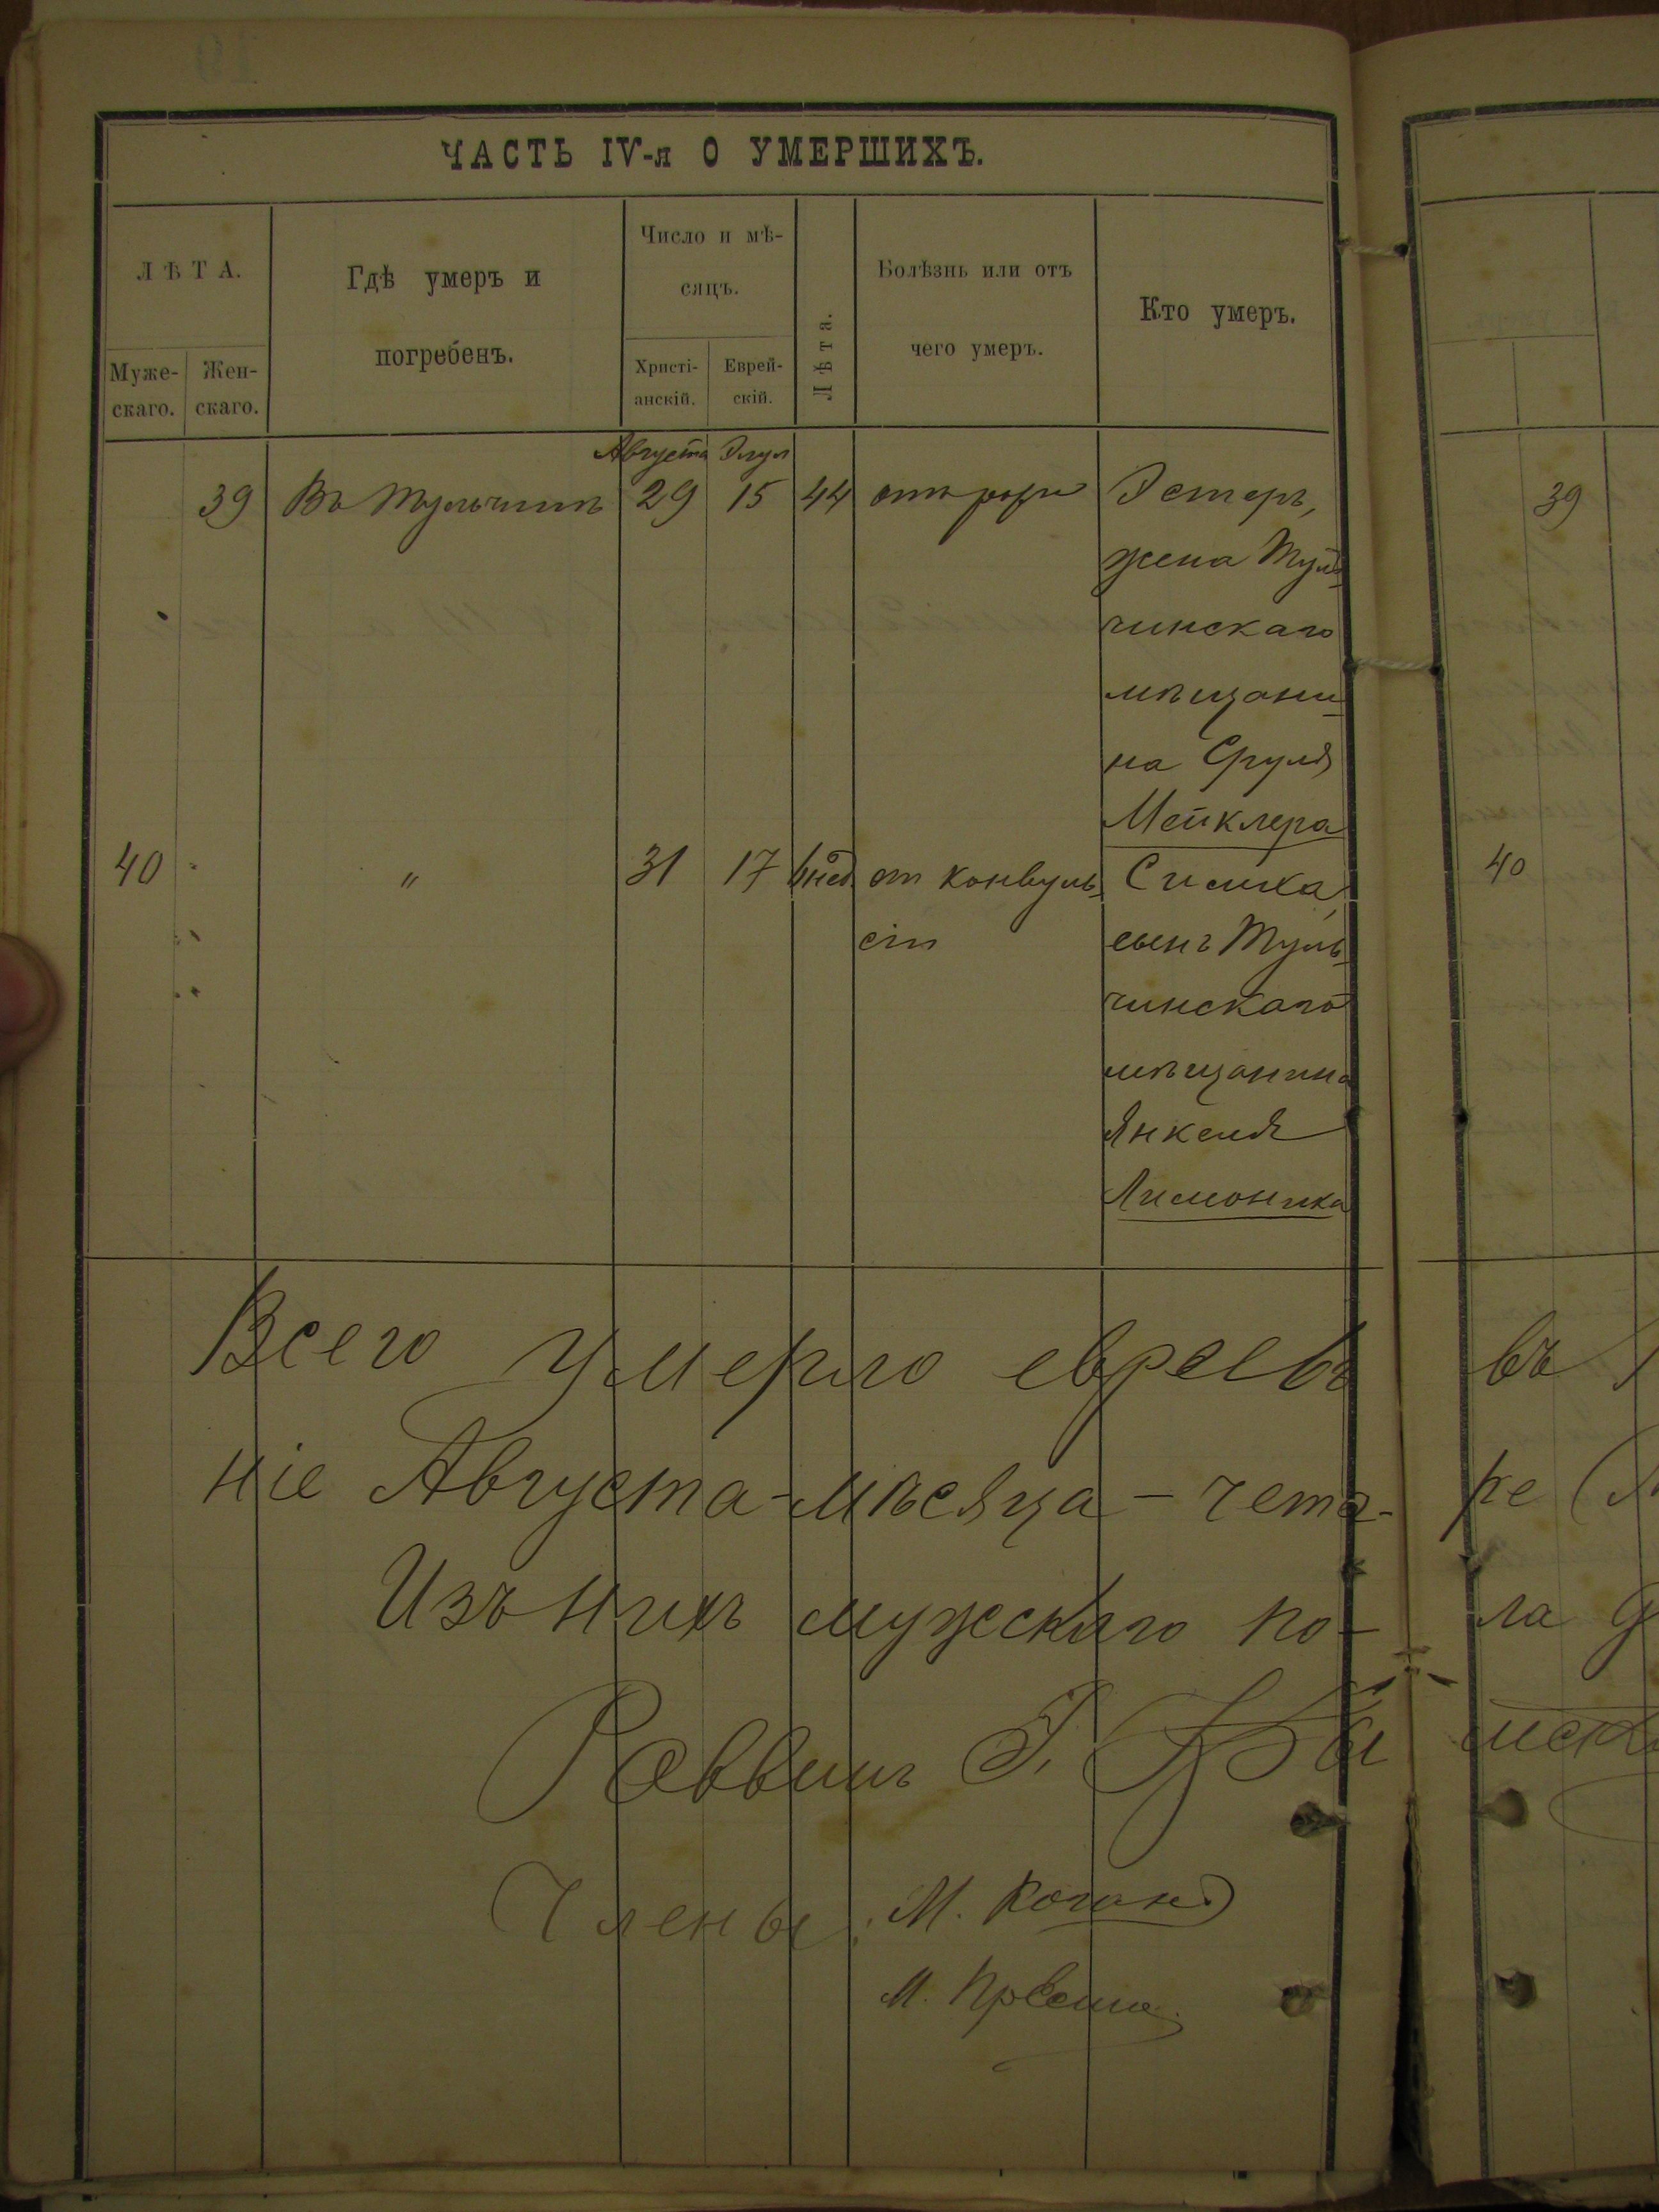 ЧАСТЬ IV-я О УМЕРШИХЪ.
ЛѢТА.
Муже-
скаго.
Жен-
скаго.
Гдѣ умеръ и
погребенъ.
Число и мѣ-
сяцъ.
Христі-
анскій.
Еврей-
скій.
Лѣта.
Болѣзнь или отъ
чего умеръ.
Кто умеръ.
Августа Элул
39 Въ Тульчинѣ 29 15 44 отъ Эстеръ,
жена Туль-
чинскаго
мѣщани-
на Сруля
Мейклера
40 " 31 17 нед от конвуль- Симха,
сіи сынъ Туль-
чинскаго
мѣщанина
Янкеля
Лимоника
Всего умерло евреевъ
ніе Августа-мѣсяца - четы-
Изъ нихъ мужскаго по-
Раввинъ
Члены: М. Коганъ
М.
39
40
въ
ре
ла